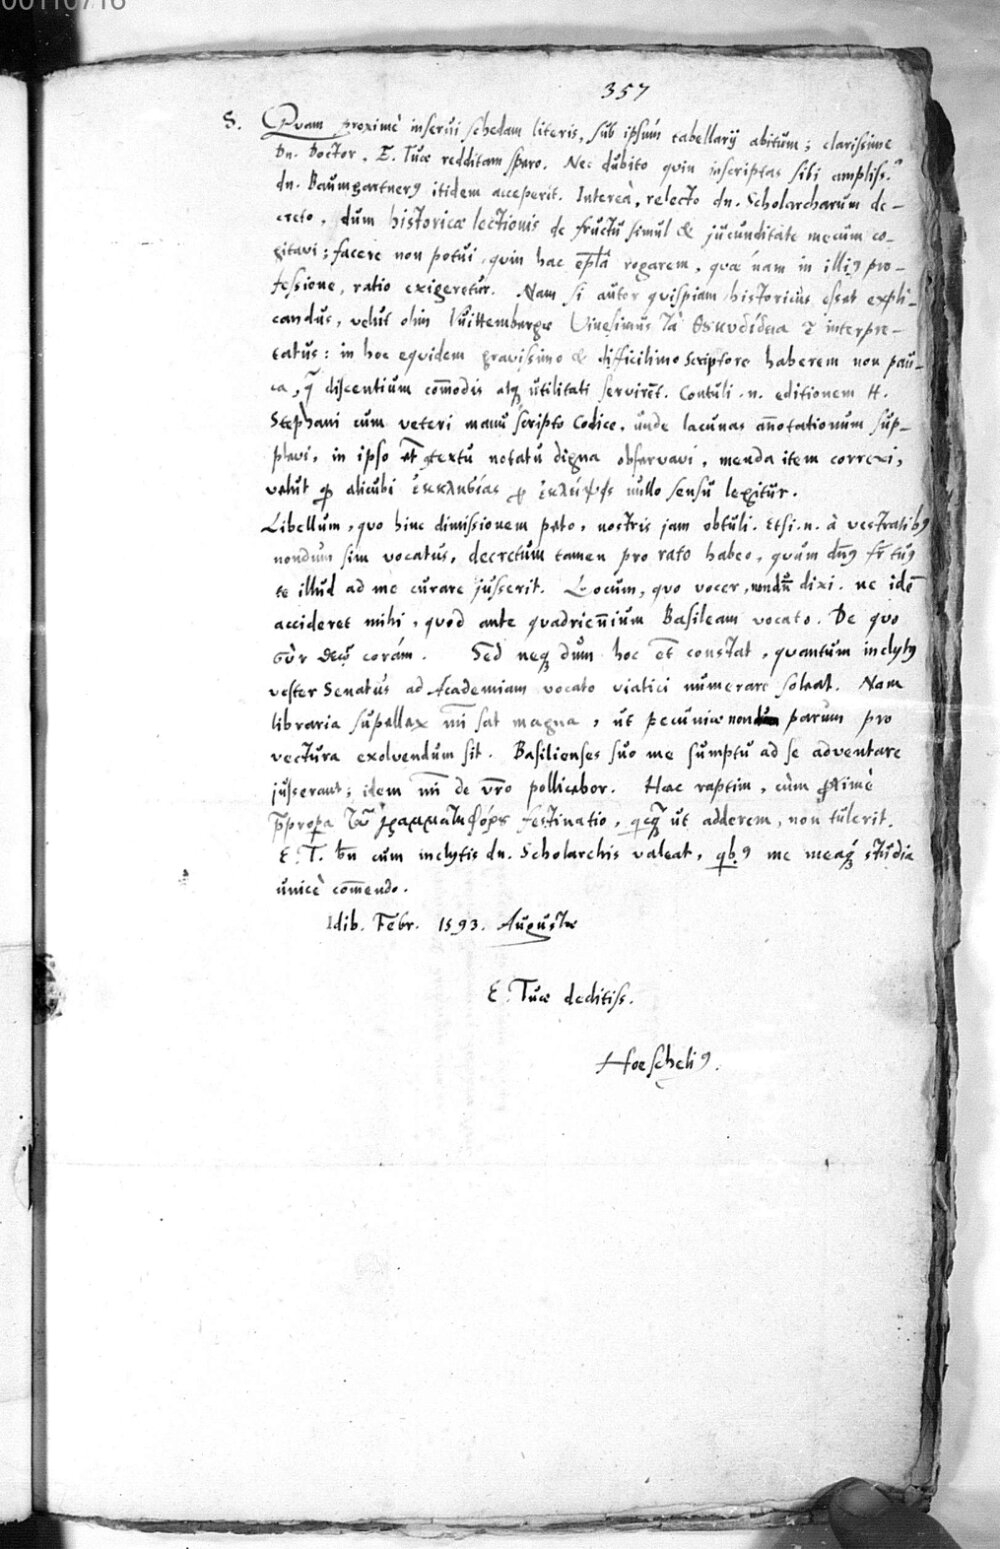 00110716
357
S. Quam proximè inserui schedam literis, sub ipsum tabellarij abitum; clarissime
Dn. Doctor, E. Tuæ redditam spero. Nec dubito quin inscriptas sibi ampliss.
dn. Baumgartnerꝰ itidem acceperit. Intereà, relecto dn. Scholarcharum de-
creto, dum historicæ lectionis de fructu simul & jucunditate mecum co-
gitavi; facere non potui, quin hac epl̃a rogarem, quæ nam in illiꝰ pro-
fessione, ratio exigeretur. Nam si autor quispiam historicus esset expli-
candus, velut olim Wittembergæ Vinesimus τὰ Θȣκυδίδȣ interpre-
tatus: in hoc equidem gravissimo & difficilimo scriptore haberem non pau-
ca, q̃ discentium com̄odis atqꝫ utilitati servirẽt. Contuli .n. editionem H.
Stephani cum veteri manu scripto Codice, unde lacunas an̄otationum sup-
plevi, in ipso contextu notatu digna observavi, menda item correxi,
velut alicubi ἐκκλησίας ἐκλείψεως nullo sensu legitur.
Libellum, quo hinc dimissionem peto, nostris jam obtuli. Etsi .n. à vestratibꝰ
nondum sim vocatus, decretum tamen pro rato habeo, quum dn̄ꝰ fr̄ tuꝰ
te illud ad me curare jusserit. Locum, quo vocer, nondũ dixi. ne idẽ
accideret mihi, quod ante quadrien̄ium Basileam vocato. De quo
σὺν θεῷ coràm. Sed neqꝫ dum hoc et constat, quantum inclytꝰ
vester Senatus ad Academiam vocato viatici numerare soleat. Nam
libraria supellex m̄i sat magna, ut pecuniæ non parum pro
vectura exolvendum sit. Basilienses suo me sumptu ad se adventare
jusserant; idem m̄i de vr̄o pollicebor. Hæc raptim, cùm proximè
p̄propera τῶν γραμματηφόρων festinatio, ut adderem, non tulerit.
E. T. bn̄ cum inclytis dn. Scholarchis valeat, qbꝰ me meaqꝫ studia
unicè com̄endo.
Idib. Febr. 1593. Augustæ
E. Tuæ deditiss.
Hoescheliꝰ.